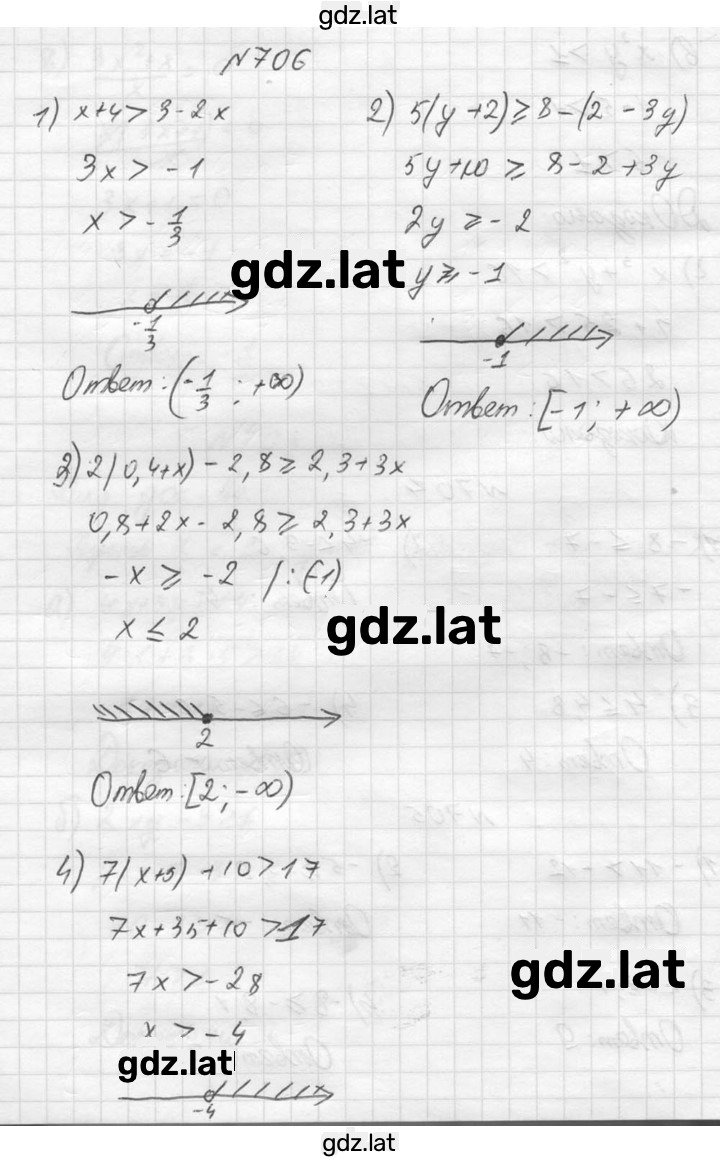 gdz.lat
№706
1) x+4>3-2x
3x>-1
x>-1/3
-1/3
Ответ:(-1/3;+∞)
2) 5(y+2)≥8-(2-3y)
5y+10≥8-2+3y
2y≥-2
gdz.lat
y≥-1
-1
Ответ:[-1;+∞)
3) 2(0,4+x)-2,8≥2,3+3x
0,8+2x-2,8≥2,3+3x
-x≥-2 /:(-1)
x≤2
gdz.lat
2
Ответ:[2;-∞)
4) 7(x+5)+10>17
7x+35+10>17
7x>-28
gdz.lat
x>-4
gdz.lat
-4
gdz.lat